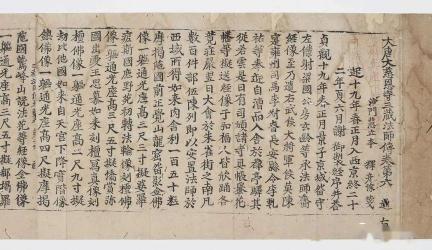 大唐大慈恩寺三藏法師傳卷第六
沙門慧立本 釋彥悰箋
起十九年春正月入西京終二十
二年夏六月謝 御製經序并答
貞觀十九年春正月景子京城留守
左僕射梁國公房玄齡等承法師齎
經像至乃遣右武侯大將軍侯莫陳
寔雍州司馬李叔眘長安縣令李乾
祐等奉迎自漕而入舍於都亭驛其
從若雲是日有司頒諸寺具帳輿花
幡等擬送經像于弘福寺人皆欣踊各
競莊嚴翌日大會於朱雀街之南凡
數百件部伍陳列即以安置法師於
西域所得如來肉舍利一百五十粒
摩揭陀國前正覺山龍窟留影金佛
像一軀通光座高三尺三寸擬婆羅
痆斯國鹿野苑初轉法輪像刻檀佛
像一軀通光座高三尺五寸擬憍賞彌
國出愛王思慕如來刻檀寫真像刻
檀佛像一軀通光座高二尺九寸擬
劫比他國如來自天宮下降寶階像
銀佛像一軀通光座高四尺擬摩揭
陀國鷲峯山說法花等經像金佛像
一軀通光座高三尺五寸擬那揭羅